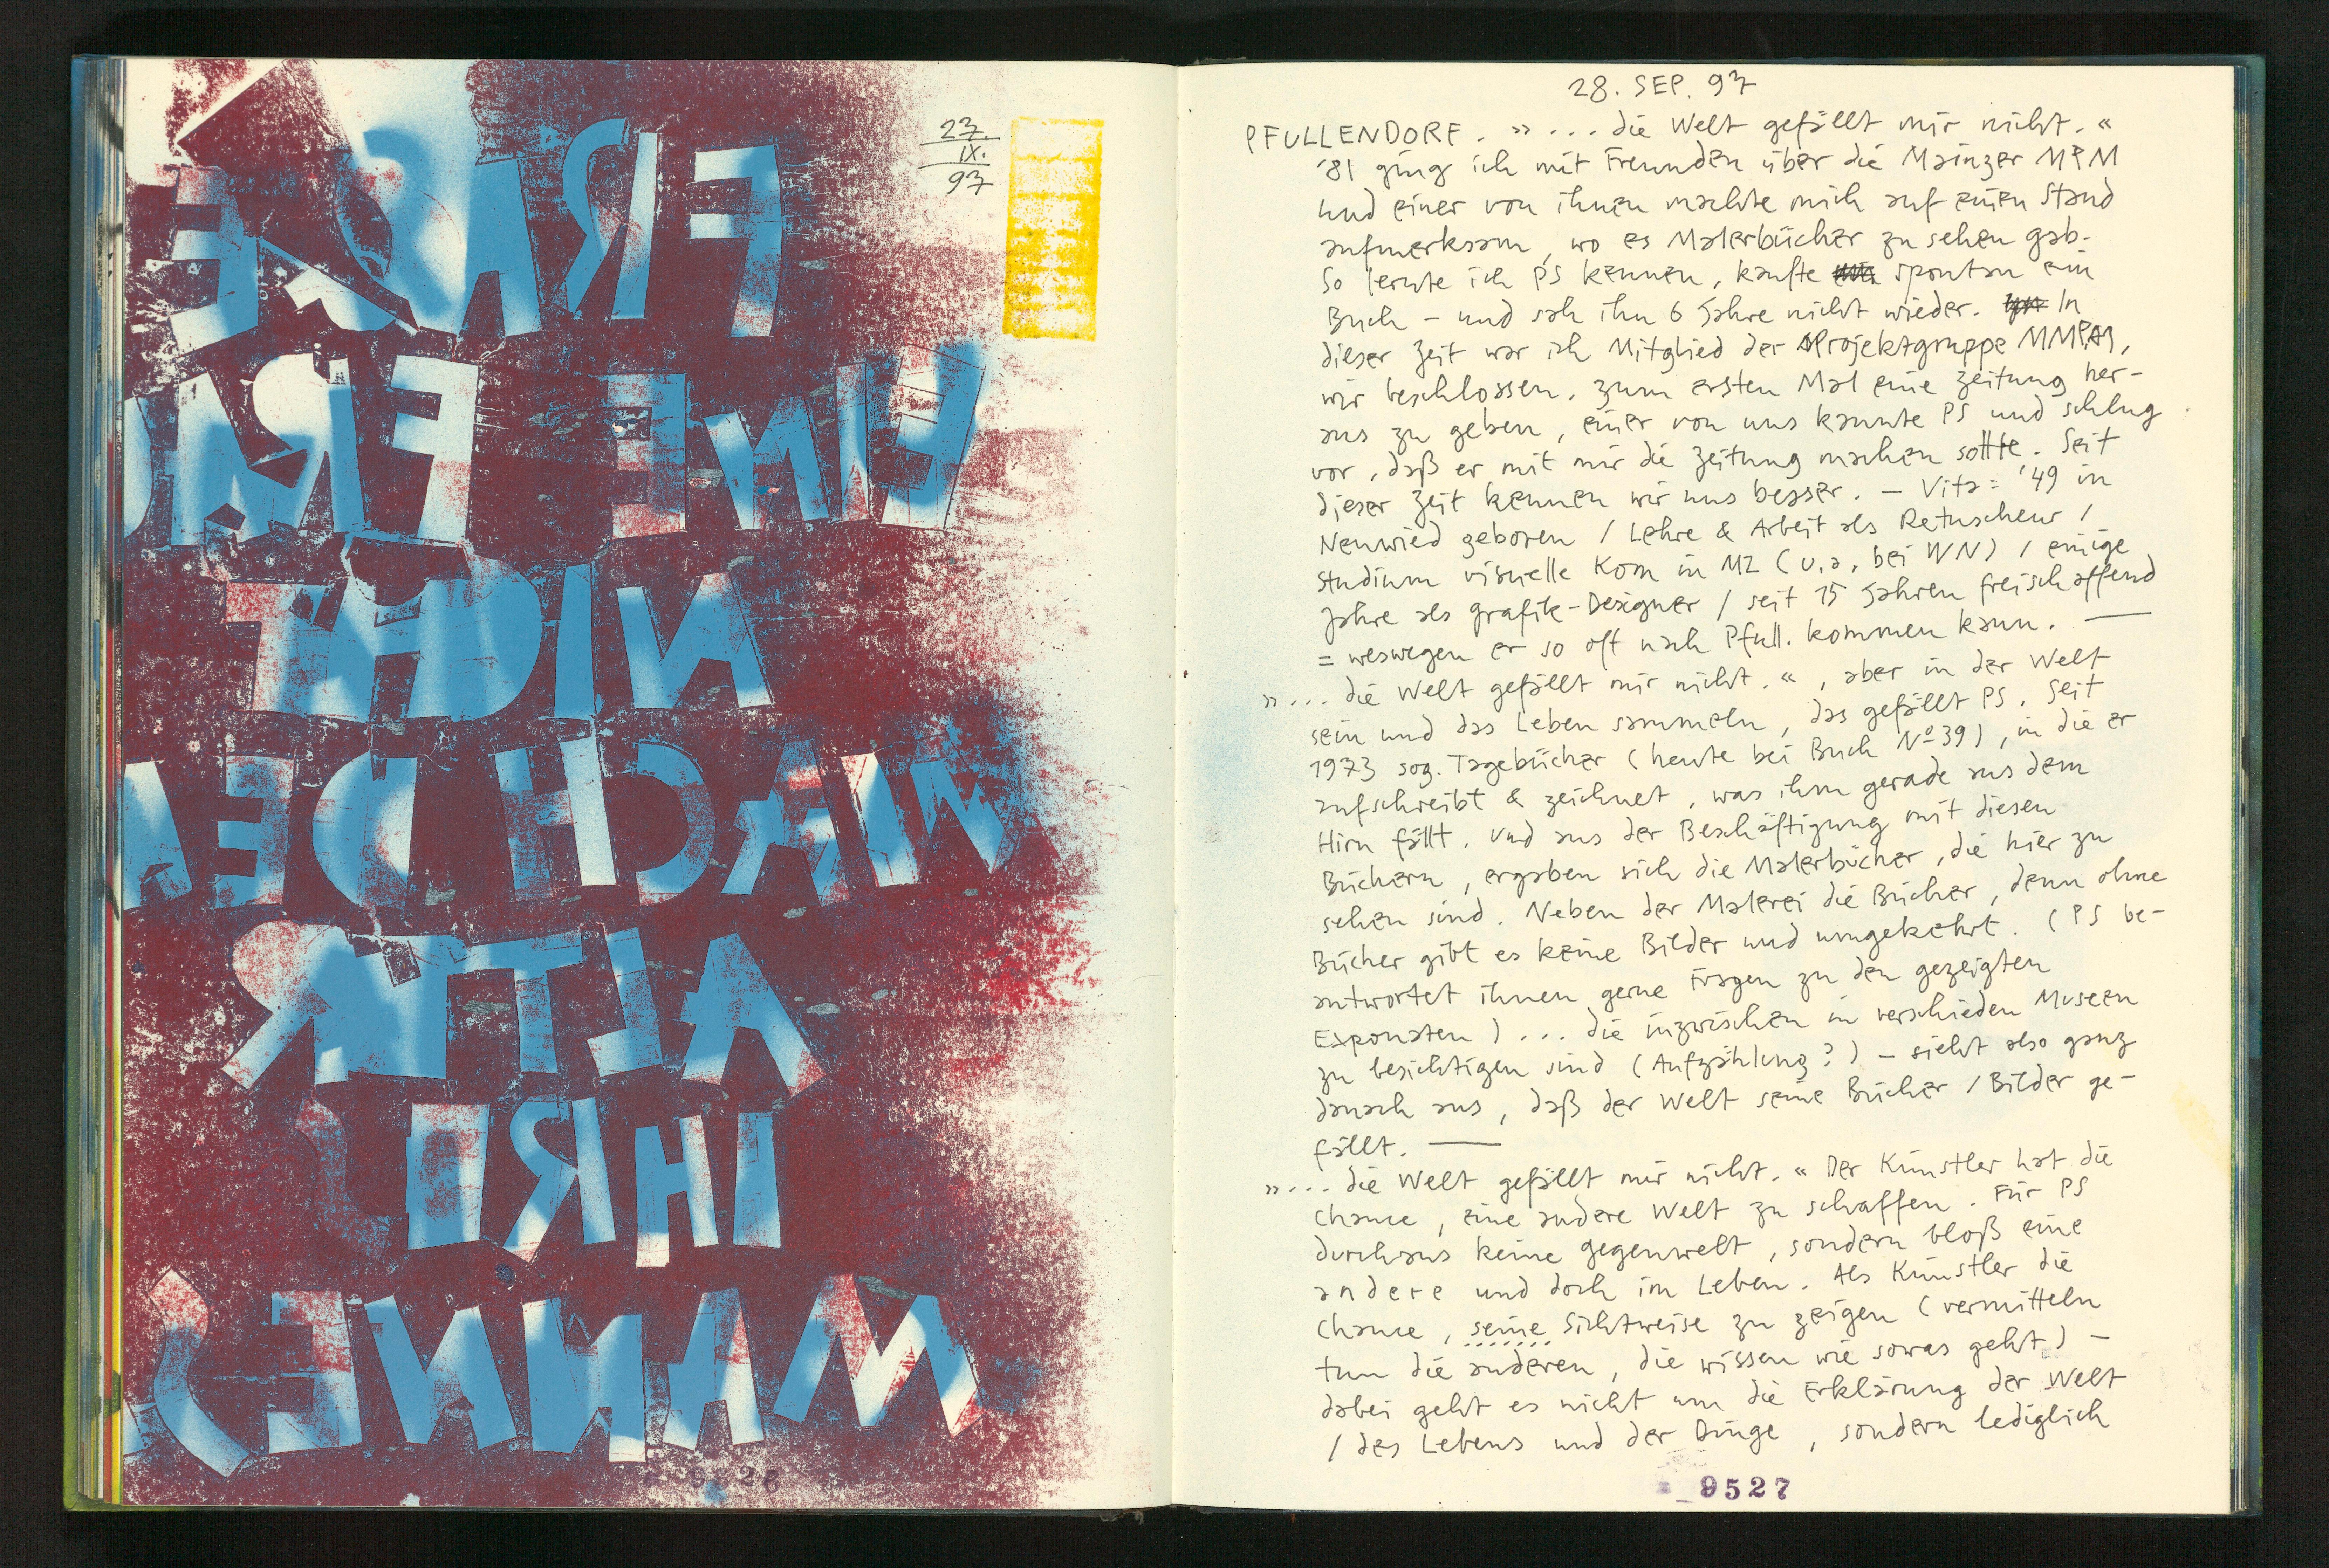 27.
IX.
97
NICHT
9526
28. SEP. 97
PFULLENDORF. »... die Welt gefällt mir nicht.«
'81 ging ich mit Freunden über die Mainzer MPM
und einer von ihnen machte mich auf einen Stand
aufmerksam, wo es Malerbücher zu sehen gab.
So lernte ich PS kennen, kaufte spontan ein
Buch – und sah ihn 6 Jahre nicht wieder. In
dieser Zeit war ich Mitglied der Projektgruppe MMPM,
wir beschlossen, zum ersten Mal eine Zeitung her-
aus zu geben, einer von uns kannte PS und schlug
vor, daß er mit mir die Zeitung machen sollte. Seit
dieser Zeit kennen wir uns besser. – Vita: '49 in
Neuwied geboren / Lehre & Arbeit als Retuscheur /
Studium visuelle Kom in MZ (u.a. bei WN) / einige
Jahre als Grafik-Designer / seit 15 Jahren freischaffend
= weswegen er so oft nach Pfull. kommen kann. —
»... die Welt gefällt mir nicht.«, aber in der Welt
sein und das Leben sammeln, das gefällt PS. Seit
1973 sog. Tagebücher (heute bei Buch Nº 39), in die er
aufschreibt & zeichnet, was ihm gerade aus dem
Hirn fällt. Und aus der Beschäftigung mit diesen
Büchern, ergaben sich die Malerbücher, die hier zu
sehen sind. Neben der Malerei die Bücher, denn ohne
Bücher gibt es keine Bilder und umgekehrt. (PS be-
antwortet ihnen gerne Fragen zu den gezeigten
Exponaten) ... die inzwischen in verschieden Museen
zu besichtigen sind (Aufzählung?) – sieht also ganz
danach aus, daß der Welt seine Bücher / Bilder ge-
fällt. —
»... die Welt gefällt mir nicht.« Der Künstler hat die
Chance, eine andere Welt zu schaffen. Für PS
durchaus keine Gegenwelt, sondern bloß eine
andere und doch im Leben. Als Künstler die
Chance, seine Sichtweise zu zeigen (vermitteln
tun die anderen, die wissen wie sowas geht) –
dabei geht es nicht um die Erklärung der Welt
/ des Lebens und der Dinge, sondern lediglich
9527